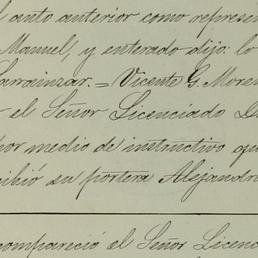 l auto anterior como represen
Manuel, y enterado dijo: lo
Larrainzar.=Vicente G. Moren
el Señor Licenciado D
por medio de instructivo qu
cibió su portera Alejandr
compareció el Señor Licenc